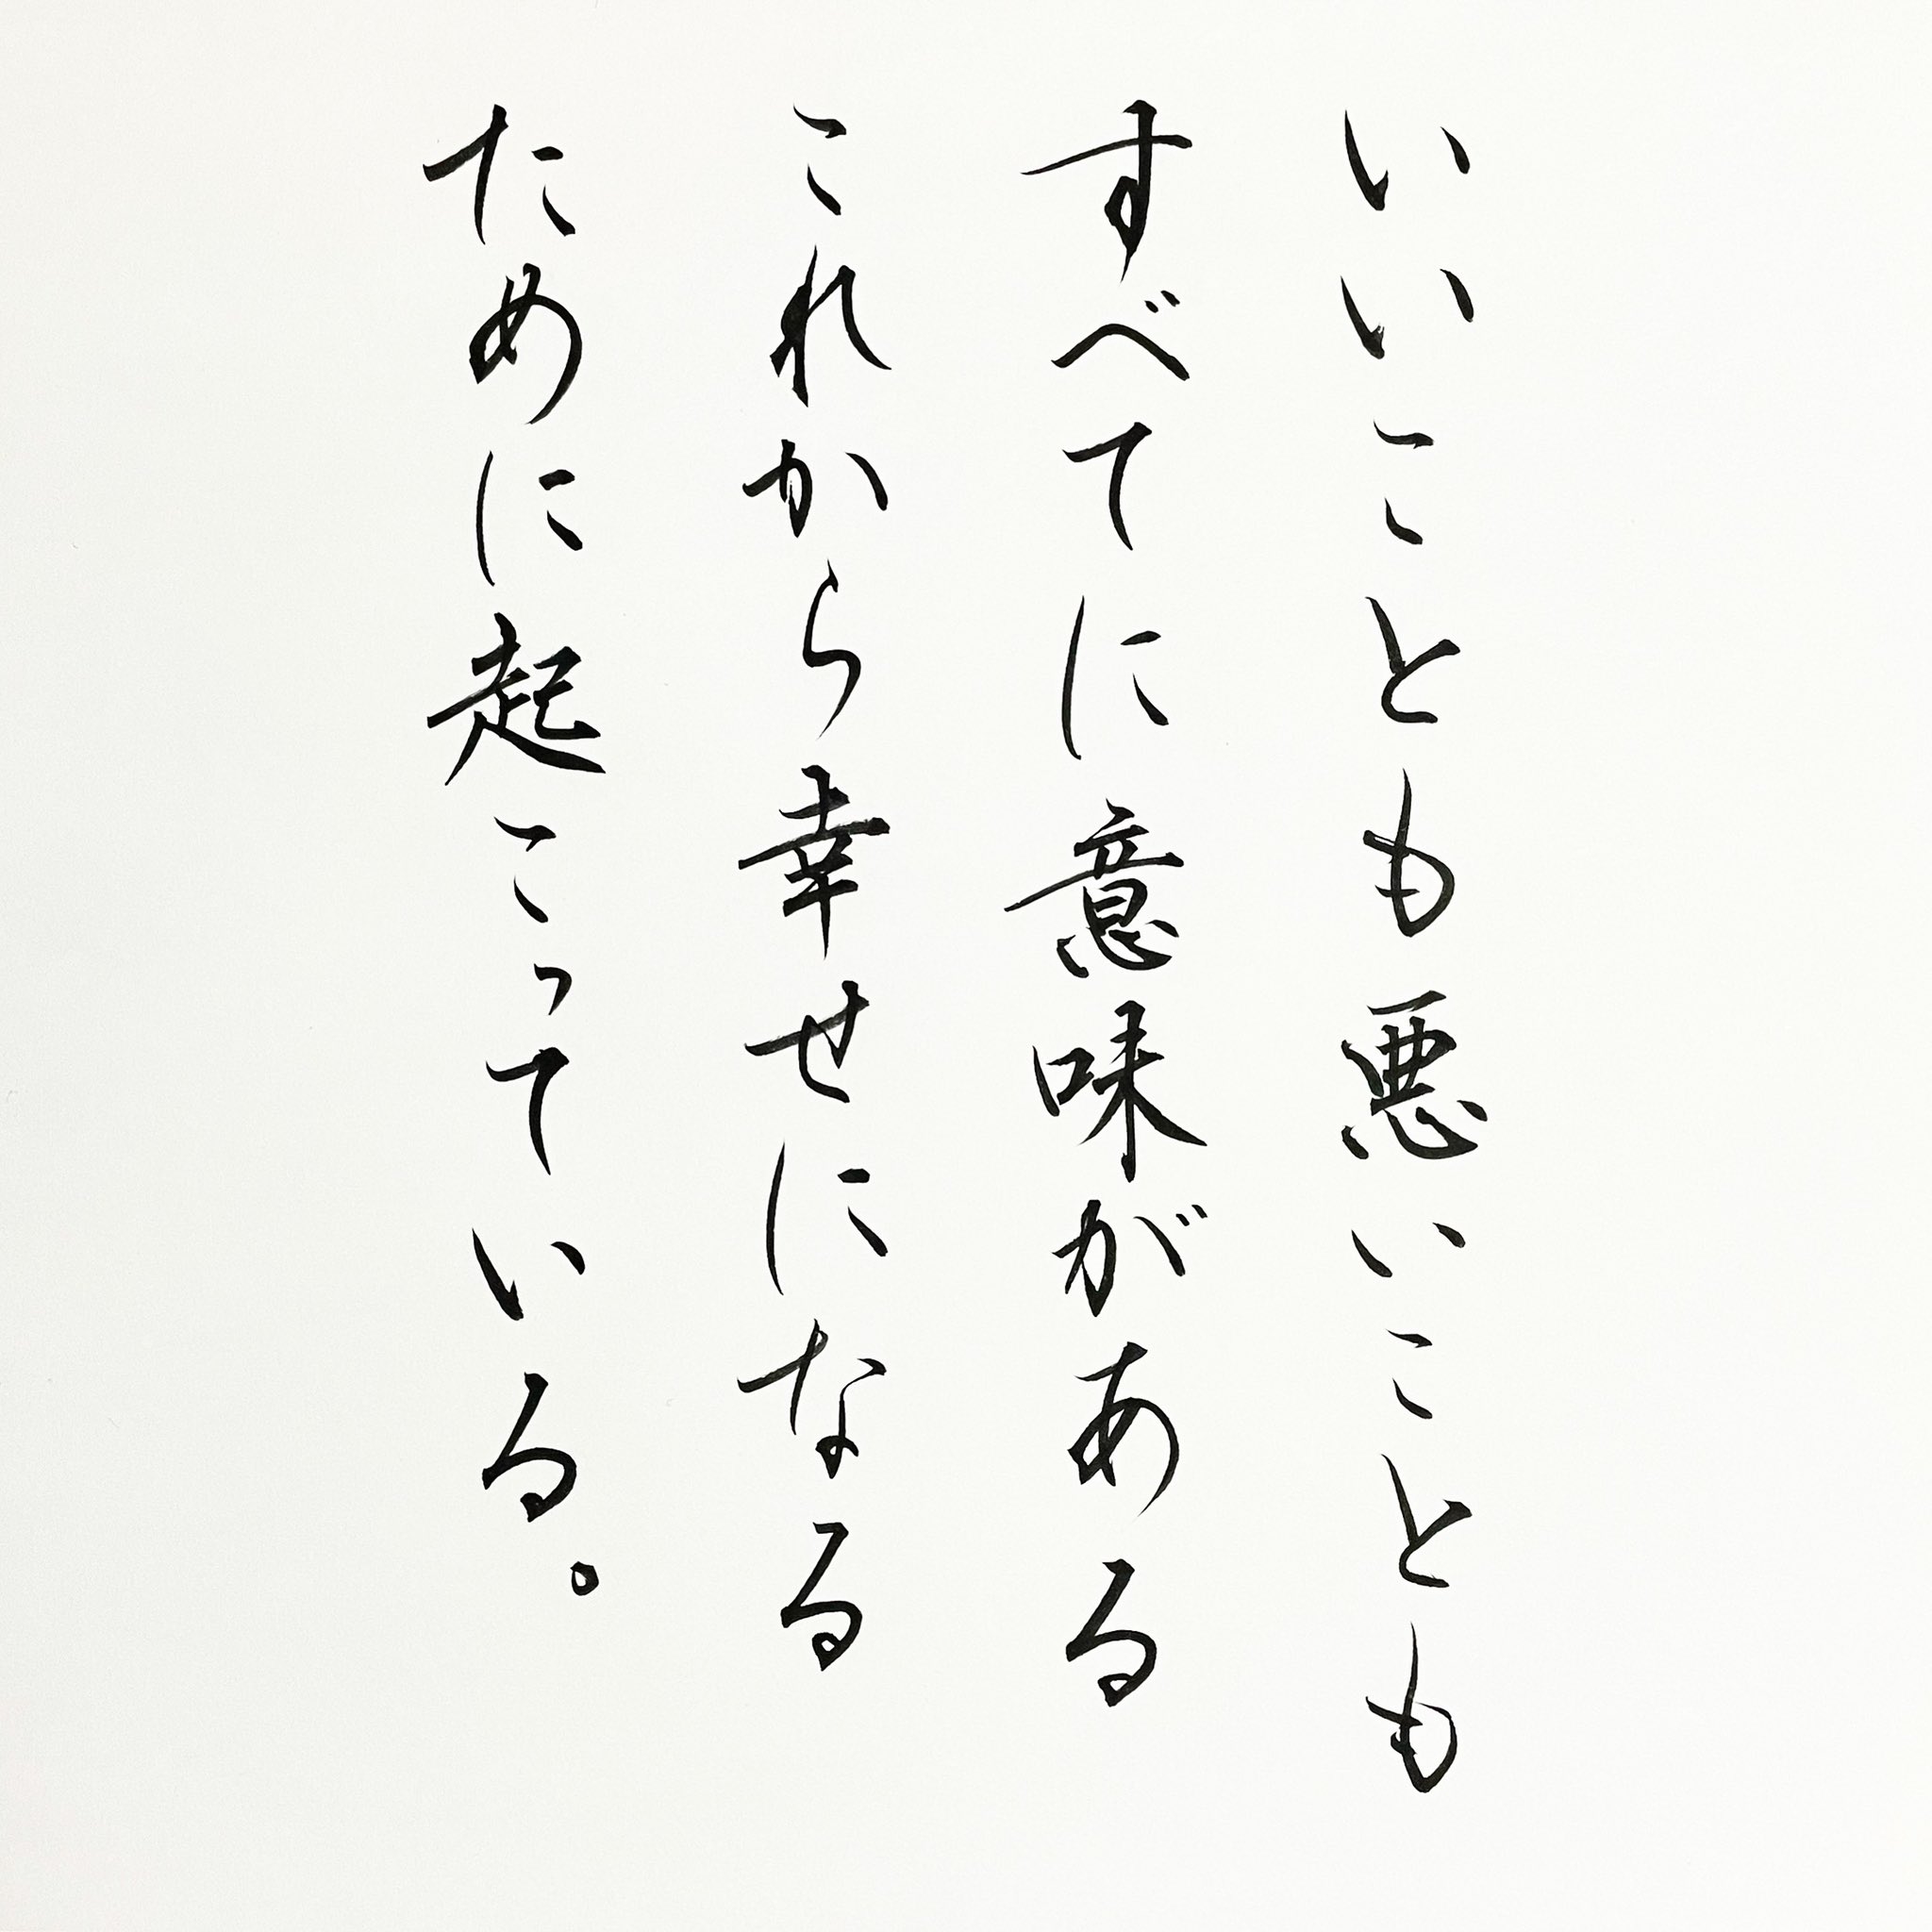 いいことも悪いことも
すべてに意味がある
これから幸せになる
ために起こっている。